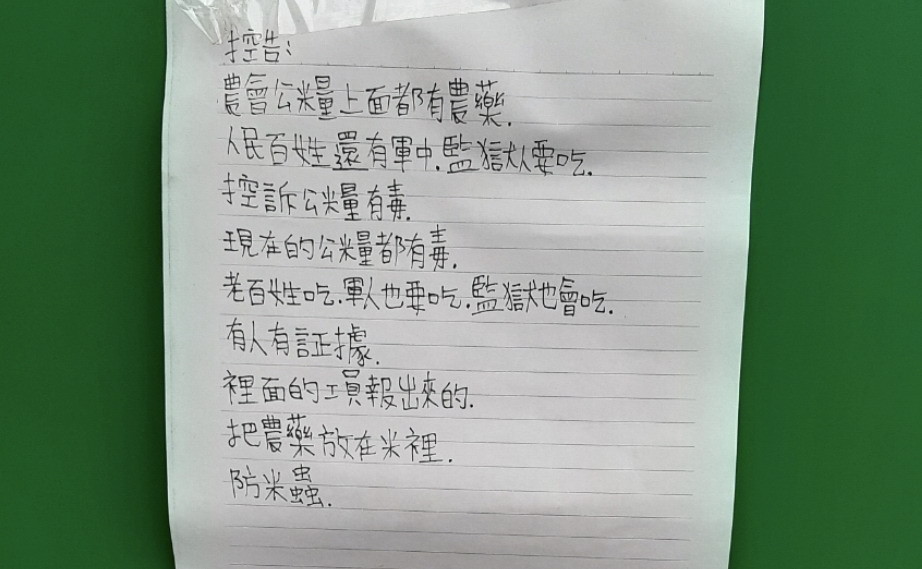 控告:
農會公糧上面都有農藥.
人民百姓還有軍中.監獄人要吃.
控訴公糧有毒.
現在的公糧都有毒.
老百姓吃.軍人也要吃.監獄也會吃.
有人有証據.
裡面的工員報出來的.
把農藥放在米裡.
防米蟲.